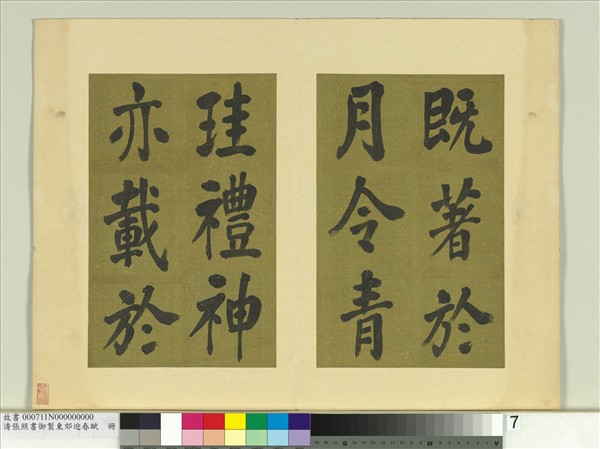 既著於
月令青
珪禮神
亦載於
故書 000711N000000000
清張照書御製東郊迎春賦 冊
7